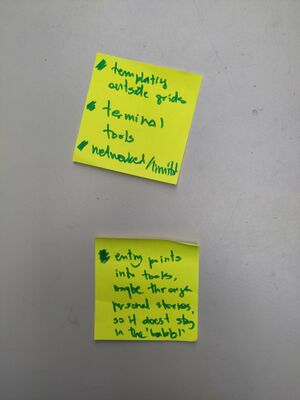 templating
outside grids
terminal
tools
networked/limited
entry points
into tools,
maybe through
personal stories,
so it doesn't stay
in the 'bubble'